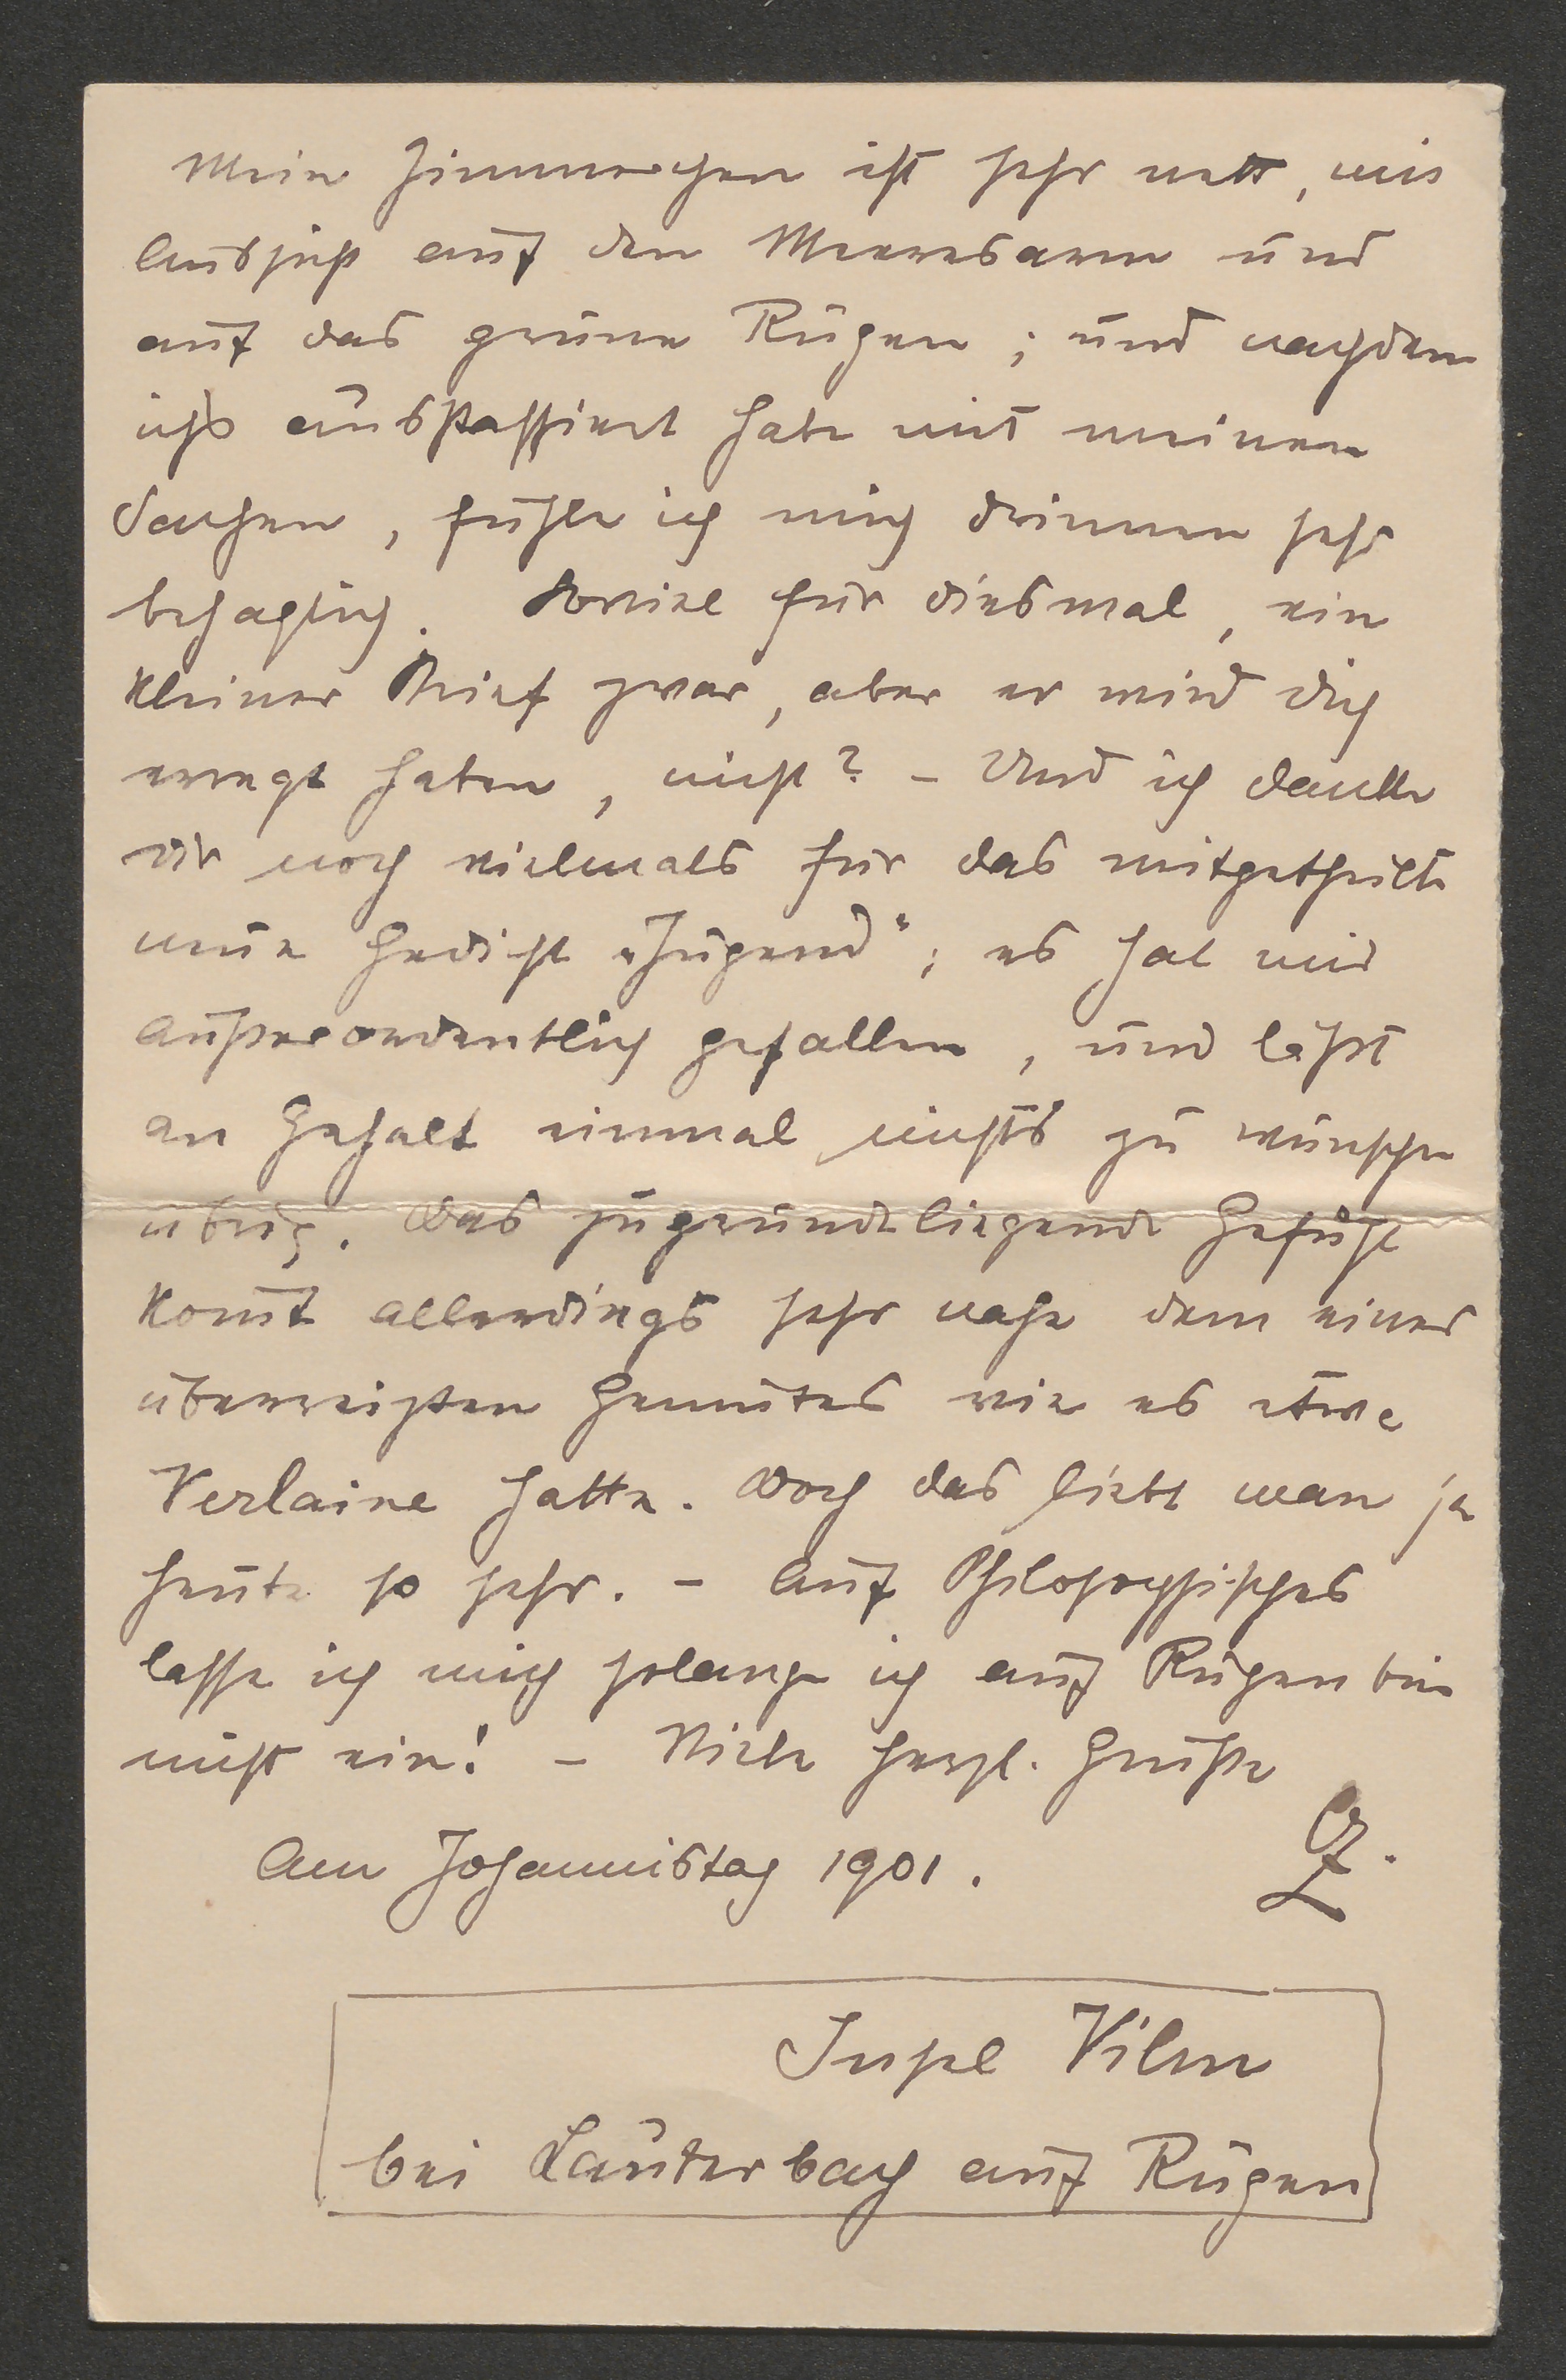 Mein Zimmerchen ist sehr nett, mit
Aussicht auf den Meeresarm und
auf das grüne Rügen; und nachdem
ichs ausstaffiert habe mit meinen
Sachen, fühle ich mich drinnen sehr
behaglich. Soviel für diesmal, ein
kleiner Brief zwar, aber er wird dich
erregt haben, nicht? – Und ich danke
dir noch vielmals für das mitgetheilte
neue Gedicht „Jugend“; es hat mir
außerordentlich gefallen, und läßt
an Gehalt einmal nichts zu wünschen
übrig. Das zugrundeliegende Gefühl
komt allerdings sehr nahe dem eines
überreizten Gemütes wie es etwa
Verlaine hatte. Doch das liebt man ja
heute so sehr. – Auf Philosophisches
lasse ich mich solange ich auf Rügen bin
nicht ein! – Viele herzl. Grüße
Am Johannistag 1901.
Insel Vilm
bei Lauterbach auf Rügen